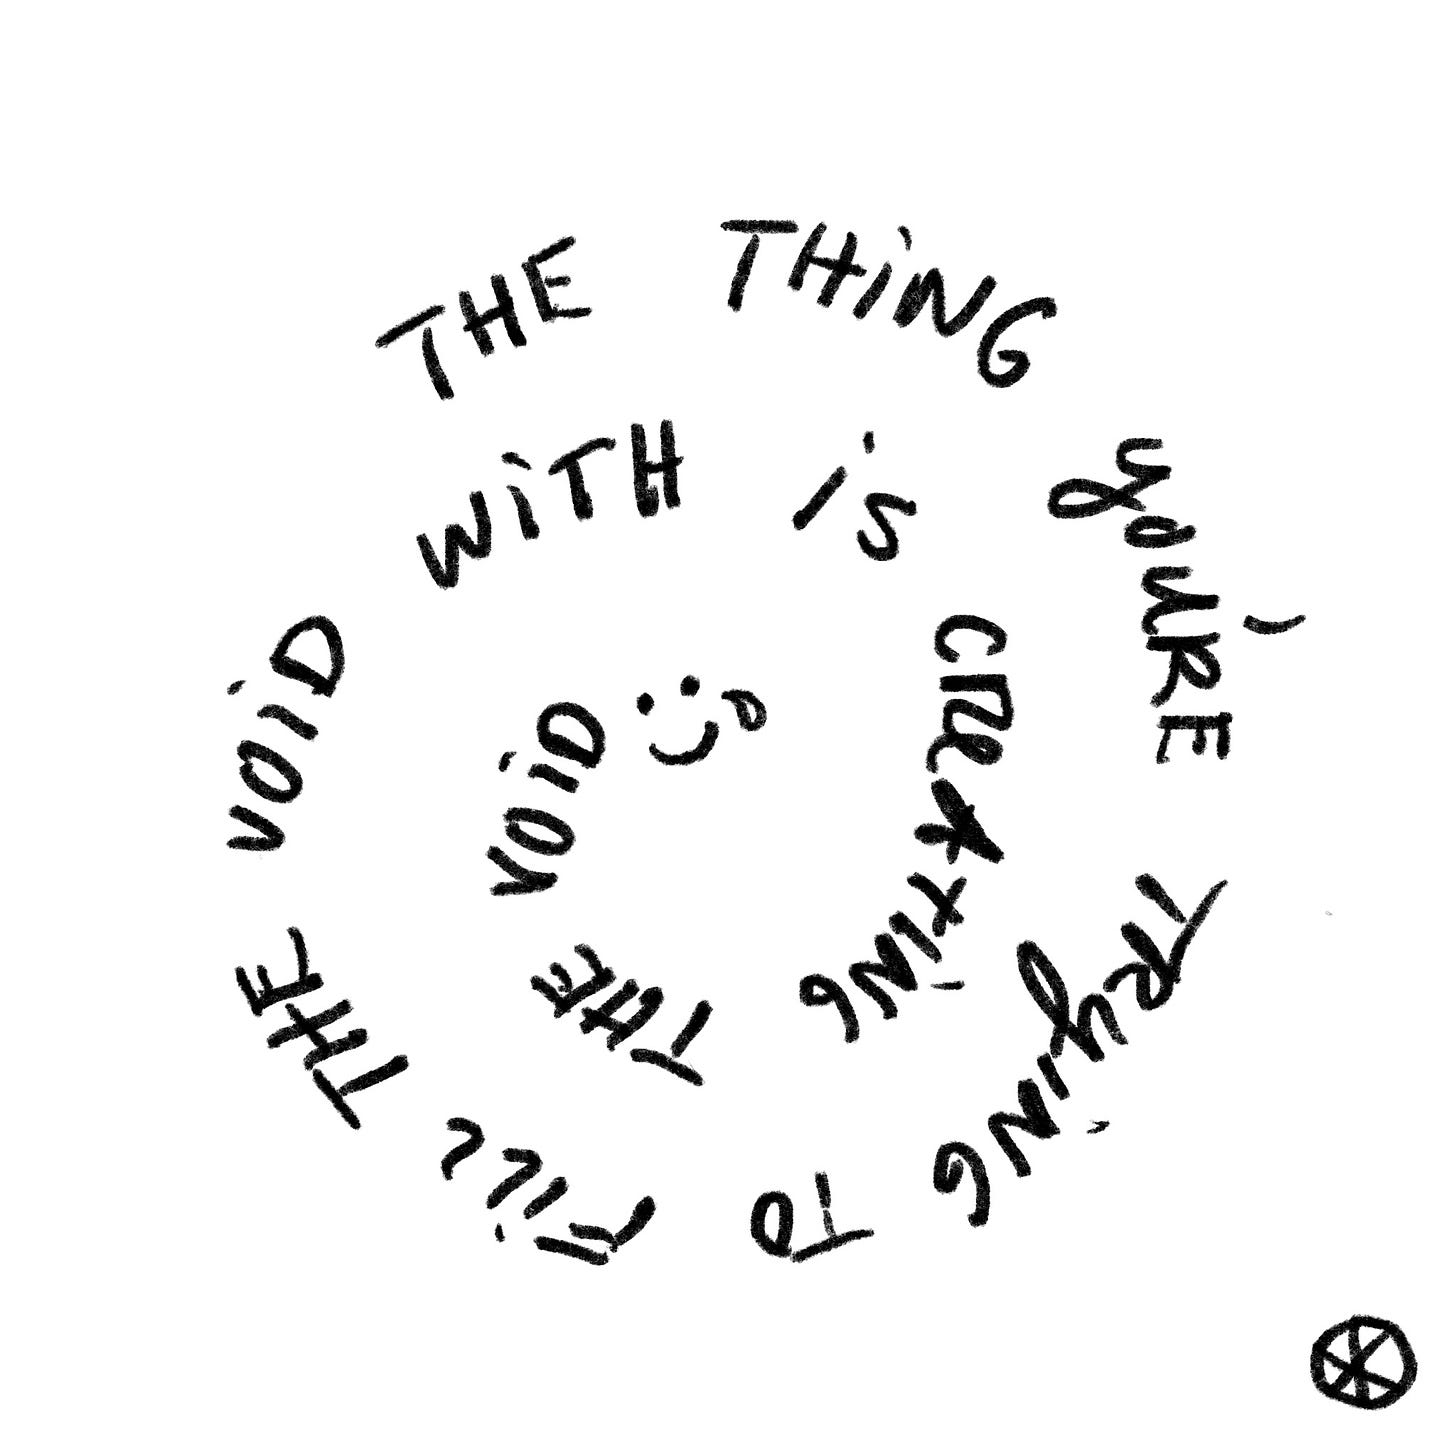 THE THING YOU'RE TRYING TO FILL THE VOID WITH IS CREATING THE VOID